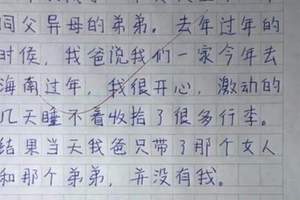 同父异母的弟弟。去年过年的
时侯，我爸说我们一家今年去
海南过年，我很开心，激动的
几天睡不着收拾了很多行李。
结果当天我爸只带了那个女人
和那个弟弟，并没有我。